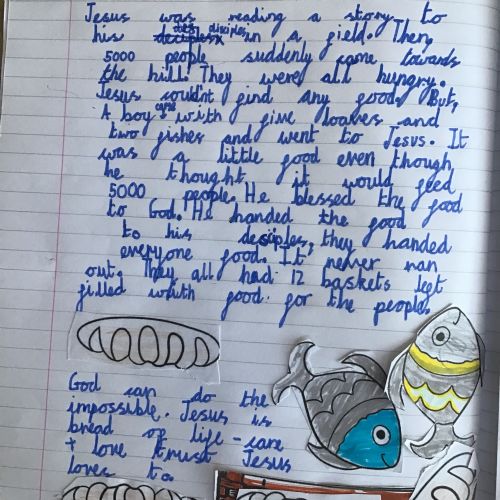 Jesus was reading a story to
his disciples in a field. Then,
5000 people suddenly came towards
the hill. They were all hungry.
Jesus couldn't find any food. But,
A boy came with five loaves and
two fishes and went to Jesus. It
was a little food even though
he thought it would feed
5000 people. He blessed the food
to God. He handed the food
to his deciples, they handed
everyone food. It never ran
out. They all had 12 baskets left
filled whith food for the people.
God can do the
impossible. Jesus is
bread of life - care
+ love trust Jesus
loves to